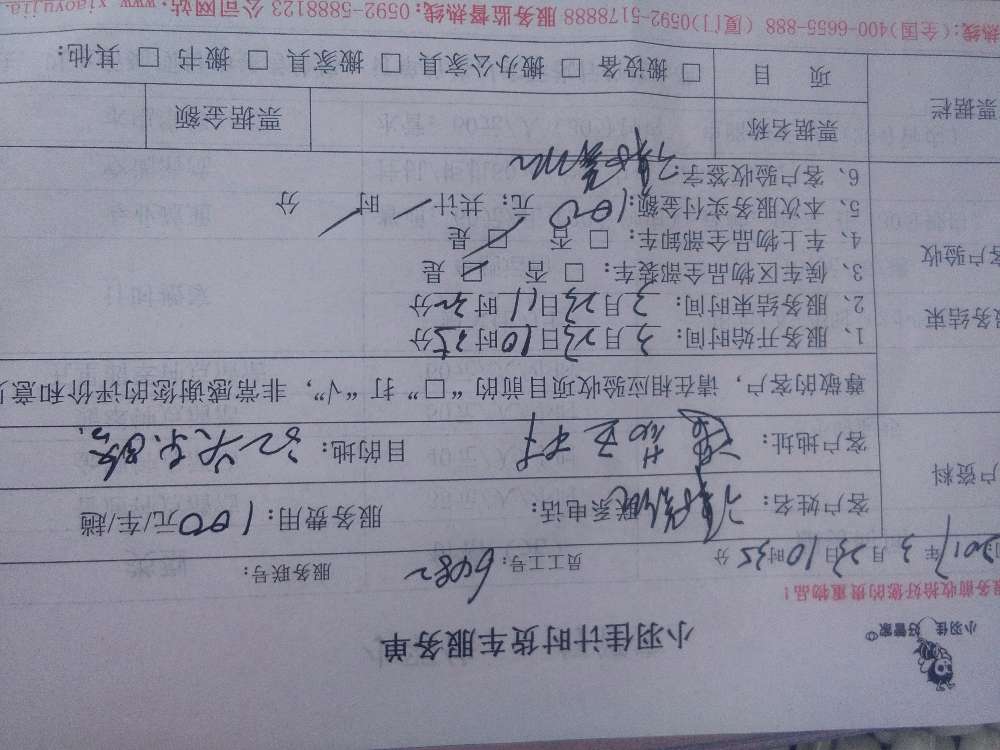 小羽佳 好管家
小羽佳计时货车服务单
服务前收拾好您的贵重物品！
2017年3月23日10时35分 员工工号：6482 服务联号：
户资料
客户姓名： 联系电话： 服务费用：100元/车/趟
客户地址： 目的地：
尊敬的客户，请在相应验收项目前的“□”打“√”，非常感谢您的评价和意
服务结束
客户验收
1、服务开始时间：3月23日10时25分
2、服务结束时间：3月23日11时30分
3、候车区物品全部装车：□否 ☑是
4、车上物品全部卸车：□否 ☑是
5、本次服务实付金额：100元；共计/时/分
6、客户验收签字：
票据栏
票据名称 票据金额
项目 □搬设备 □搬办公家具 □搬家具 □搬书 □其他：
热线：(全国)400-6655-888 (厦门)0592-5178888 服务监督热线：0592-5888123 公司网站：www.xiaoyujia.